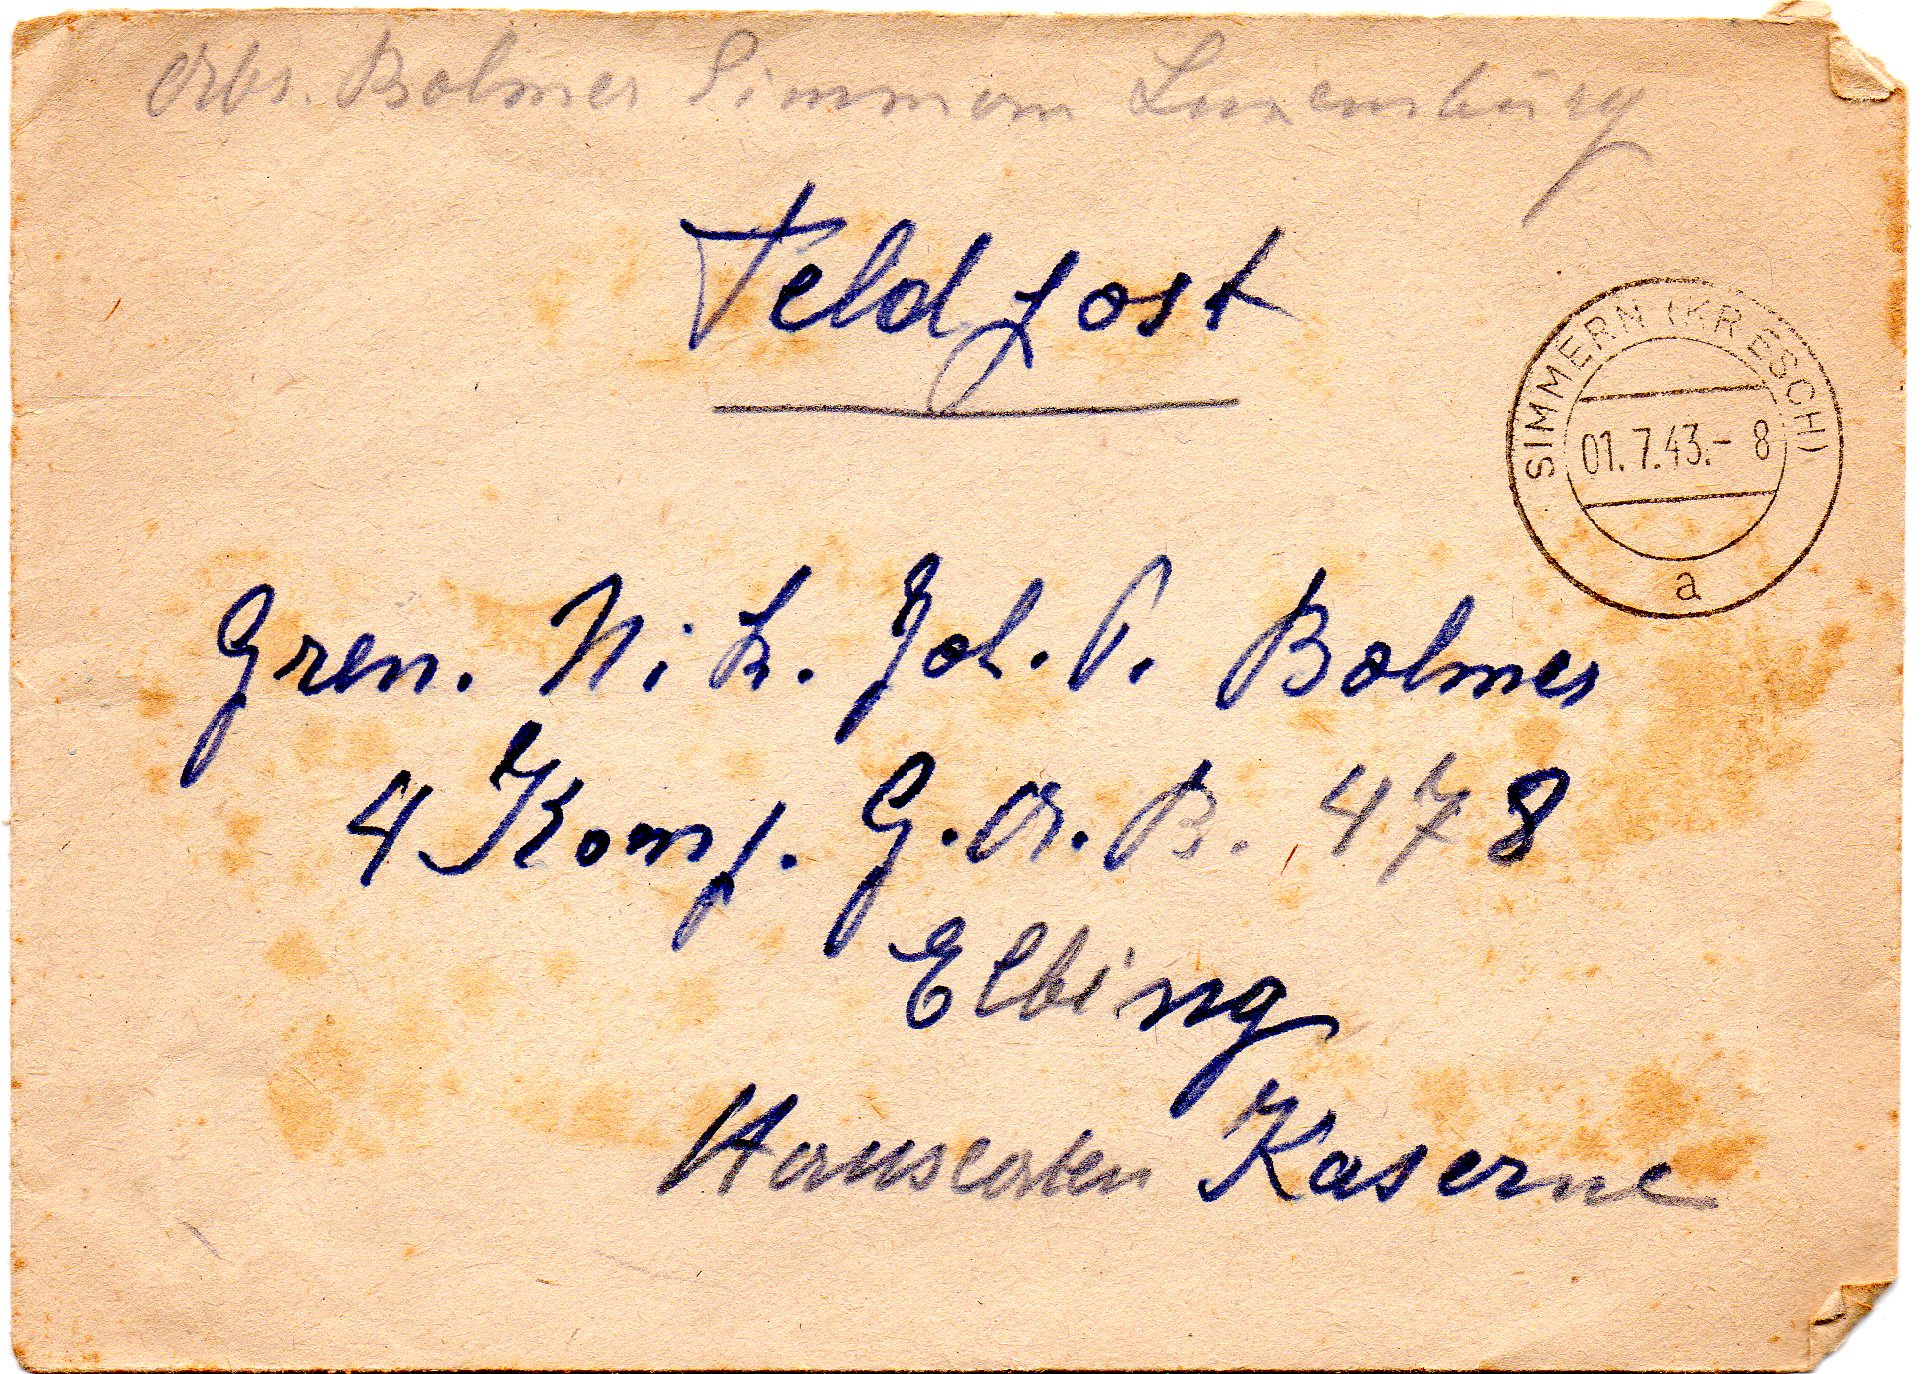 Abs. Bolmer Simmern Luxemburg
Feldpost
SIMMERN (KR ESCH)
01.7.43.- 8
a
Gren. Nik. Joh. P. Bolmer
4 Komp. G. A. B. 478
Elbing
Hanseaten Kaserne